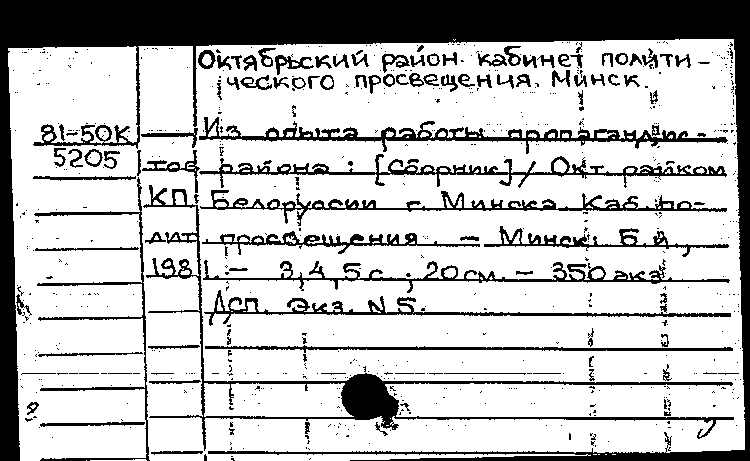 Октябрьский район. кабинет полити-
ческого просвещения. Минск.
81-50К
5205
Из опыта работы пропагандис-
тов района : [Сборник] / Окт. райком
КП Белоруссии г. Минска. Каб. по-
лит. просвещения. — Минск: Б.и.,
1981. — 3,4,5 с. ; 20 см. — 350 экз.
Дсп. Экз. N 5.